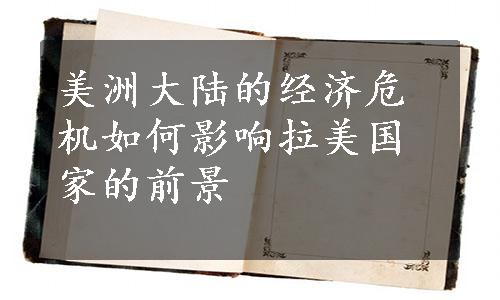 美洲大陆的经济危
机如何影响拉美国
家的前景